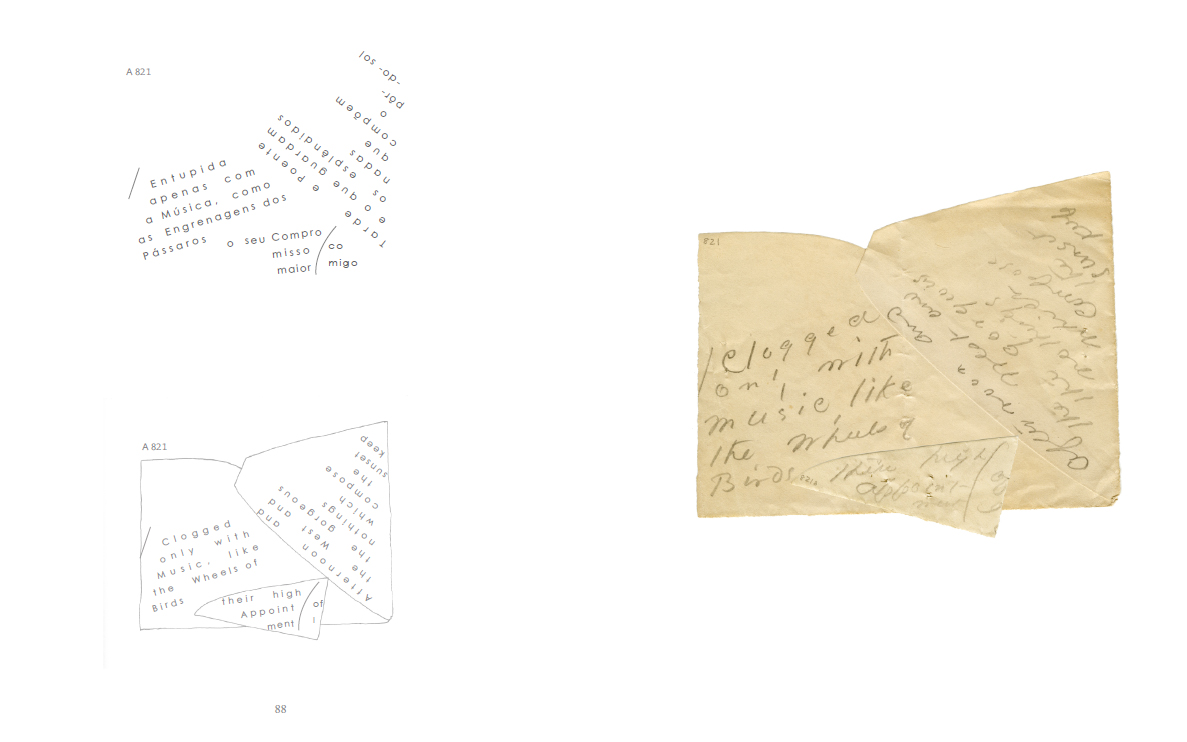 A 821
Entupida
apenas com
a Música, como
as Engrenagens dos
Pássaros
o seu Compro
misso
maior
co
migo
Tarde e Poente
e o que guardam
os esplêndidos
nadas
que
compõem
o
pôr-
-do- sol
A 821
Clogged
only with
Music, like
the Wheels of
Birds
their high
Appoint
ment
of
I
Afternoon and
the West and
the gorgeous
nothings
which
compose
the
sunset
keep
88
821
Clogged
with
music, like
the Wheels of
Birds
their high
appoint
ment
afternoon and
the West and
the gorgeous
nothings
which
compose
the
sunset
keep